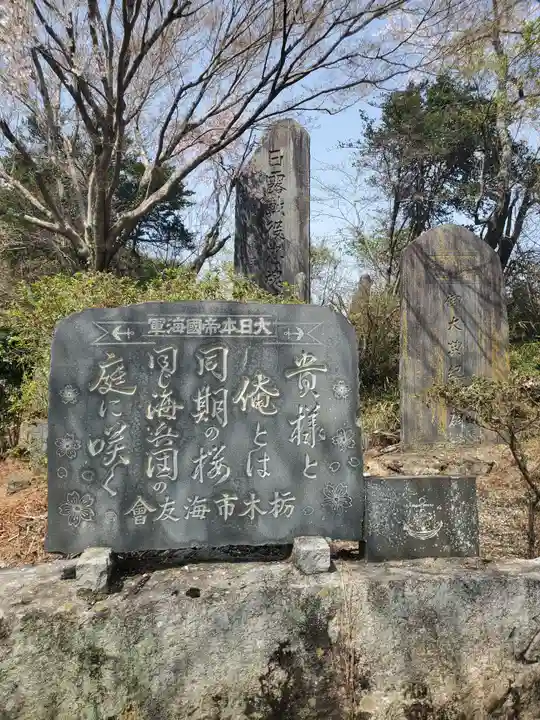 大日本帝國海軍
貴様と
俺とは
同期の桜
同じ海兵団の
庭に咲く
栃木市海友會
日露戦役